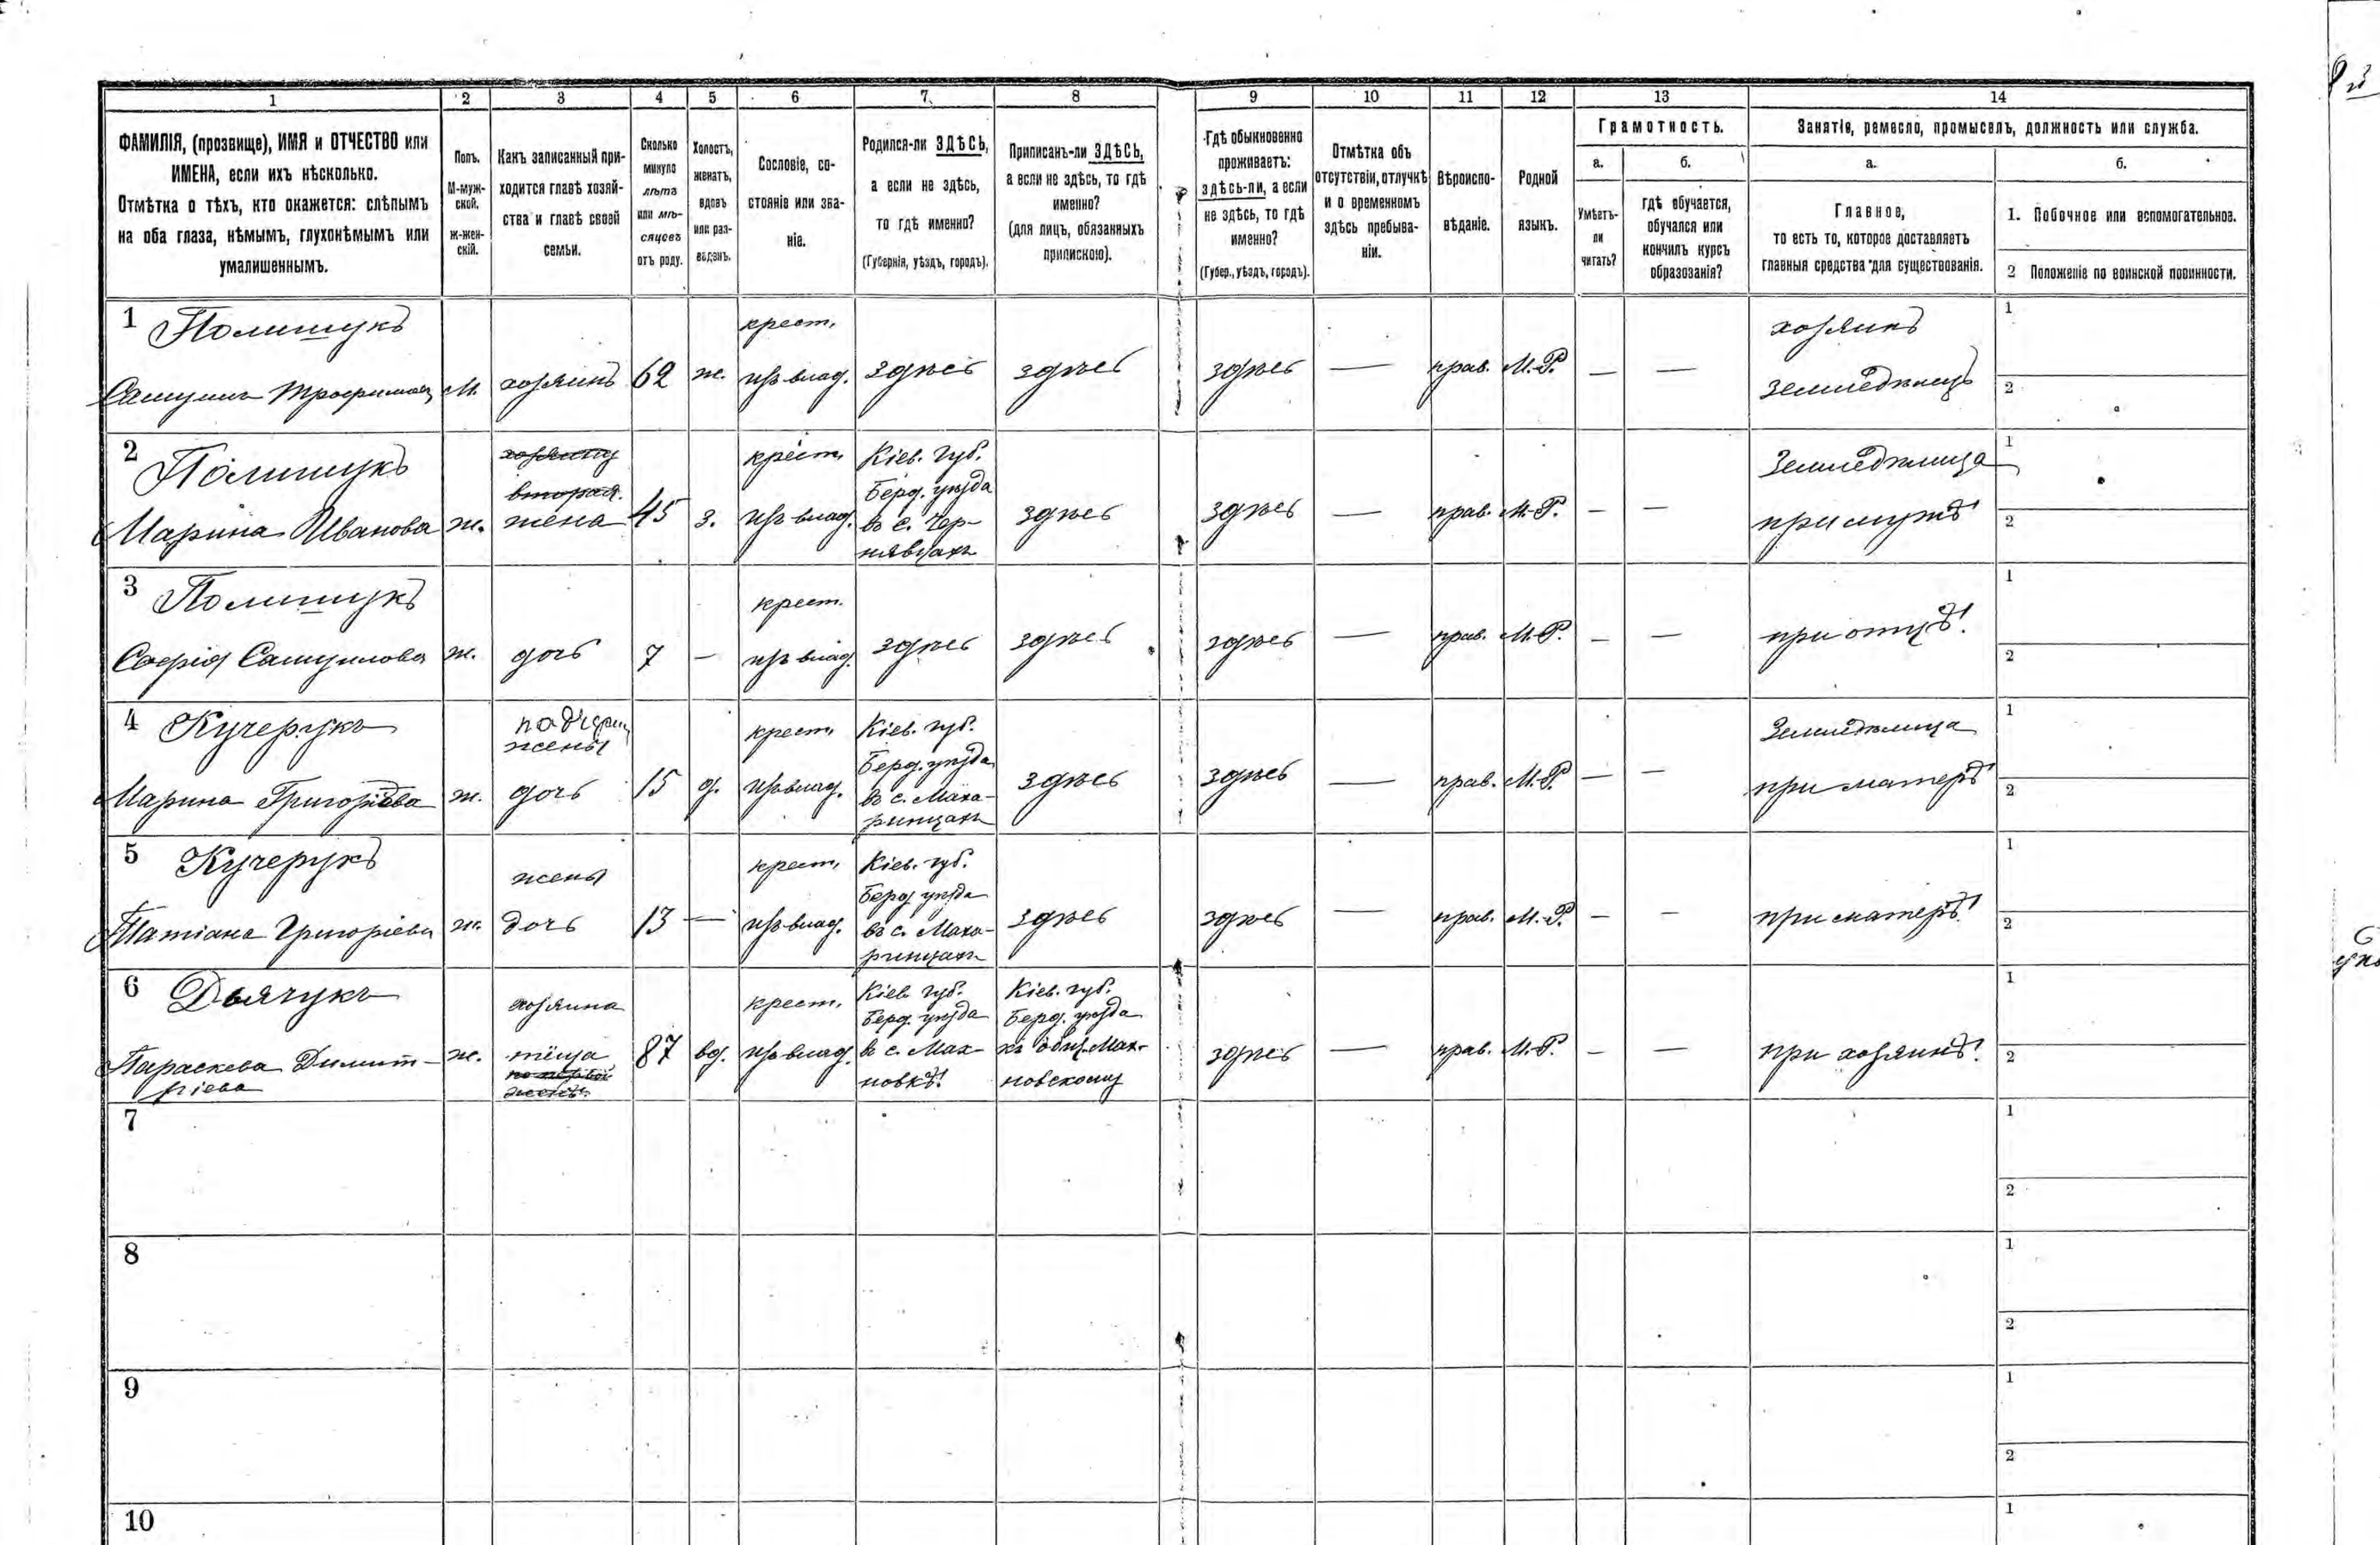 1 2 3 4 5 6 7 8 9 10 11 12 13 14
ФАМИЛІЯ, (прозвище), ИМЯ и ОТЧЕСТВО или
ИМЕНА, если ихъ нѣсколько.
Отмѣтка о тѣхъ, кто окажется: слѣпымъ
на оба глаза, нѣмымъ, глухонѣмымъ или
умалишеннымъ.
Полъ.
М-муж-
ской.
ж-жен-
скій.
Какъ записанный при-
ходится главѣ хозяй-
ства и главѣ своей
семьи.
Сколько
минуло
лѣтъ
или мѣ-
сяцевъ
отъ роду.
Холостъ,
женатъ,
вдовъ
или раз-
веденъ.
Сословіе, со-
стояніе или зва-
ніе.
Родился-ли ЗДѢСЬ,
а если не здѣсь,
то гдѣ именно?
(Губернія, уѣздъ, городъ).
Приписанъ-ли ЗДѢСЬ,
а если не здѣсь, то гдѣ
именно?
(для лицъ, обязанныхъ
припискою).
Гдѣ обыкновенно
проживаетъ:
здѣсь-ли, а если
не здѣсь, то гдѣ
именно?
(Губер., уѣздъ, городъ).
Отмѣтка объ
отсутствіи, отлучкѣ
и о временномъ
здѣсь пребыва-
ніи.
Вѣроиспо-
вѣданіе.
Родной
языкъ.
Грамотность.
а.
Умѣетъ-
ли
читать?
б.
гдѣ обучается,
обучался или
кончилъ курсъ
образованія?
Занятіе, ремесло, промыселъ, должность или служба.
а.
Главное,
то есть то, которое доставляетъ
главныя средства для существованія.
б.
1. Побочное или вспомогательное.
2 Положеніе по воинской повинности.
1 Полишукъ
Самуилъ Трофимовъ
М.
хозяинъ
62
ж.
крест.
изъ влад.
здѣсь
здѣсь
здѣсь
—
прав.
М.-Р.
—
—
хозяинъ
земледѣлецъ
1
2
2 Полишукъ
Марина Иванова
ж.
хозяину
вторая
жена
45
з.
крест.
изъ влад.
Кіев. губ.
Берд. уѣзда
въ с. Чер-
нявцахъ
здѣсь
здѣсь
—
прав.
М.-Р.
—
—
Земледѣлица
при мужѣ
1
2
3 Полишукъ
Софія Самуилова
ж.
дочь
7
—
крест.
изъ влад.
здѣсь
здѣсь
здѣсь
—
прав.
М.-Р.
—
—
при отцѣ.
1
2
4 Кучерукъ
Марина Григоріева
ж.
падчериц
жены
дочь
15
д.
крест.
изъ влад.
Кіев. губ.
Берд. уѣзда
въ с. Маха-
ринцахъ
здѣсь
здѣсь
—
прав.
М.-Р.
—
—
Земледѣлица
при матерѣ
1
2
5 Кучерукъ
Татіана Григоріева
ж.
жены
дочь
13
—
крест.
изъ влад.
Кіев. губ.
Берд. уѣзда
въ с. Маха-
ринцахъ
здѣсь
здѣсь
—
прав.
М.-Р.
—
—
при матерѣ.
1
2
6 Дьячукъ
Параскева Димит-
ріева
ж.
хозяина
тёща
по первой
женѣ.
87
вд.
крест.
изъ влад.
Кіев. губ.
Берд. уѣзда
въ с. Мах-
новкѣ.
Кіев. губ.
Берд. уѣзда
къ общ. Мах-
новскому
здѣсь
—
прав.
М.-Р.
—
—
при хозяинѣ.
1
2
7
1
2
8
1
2
9
1
2
10
1